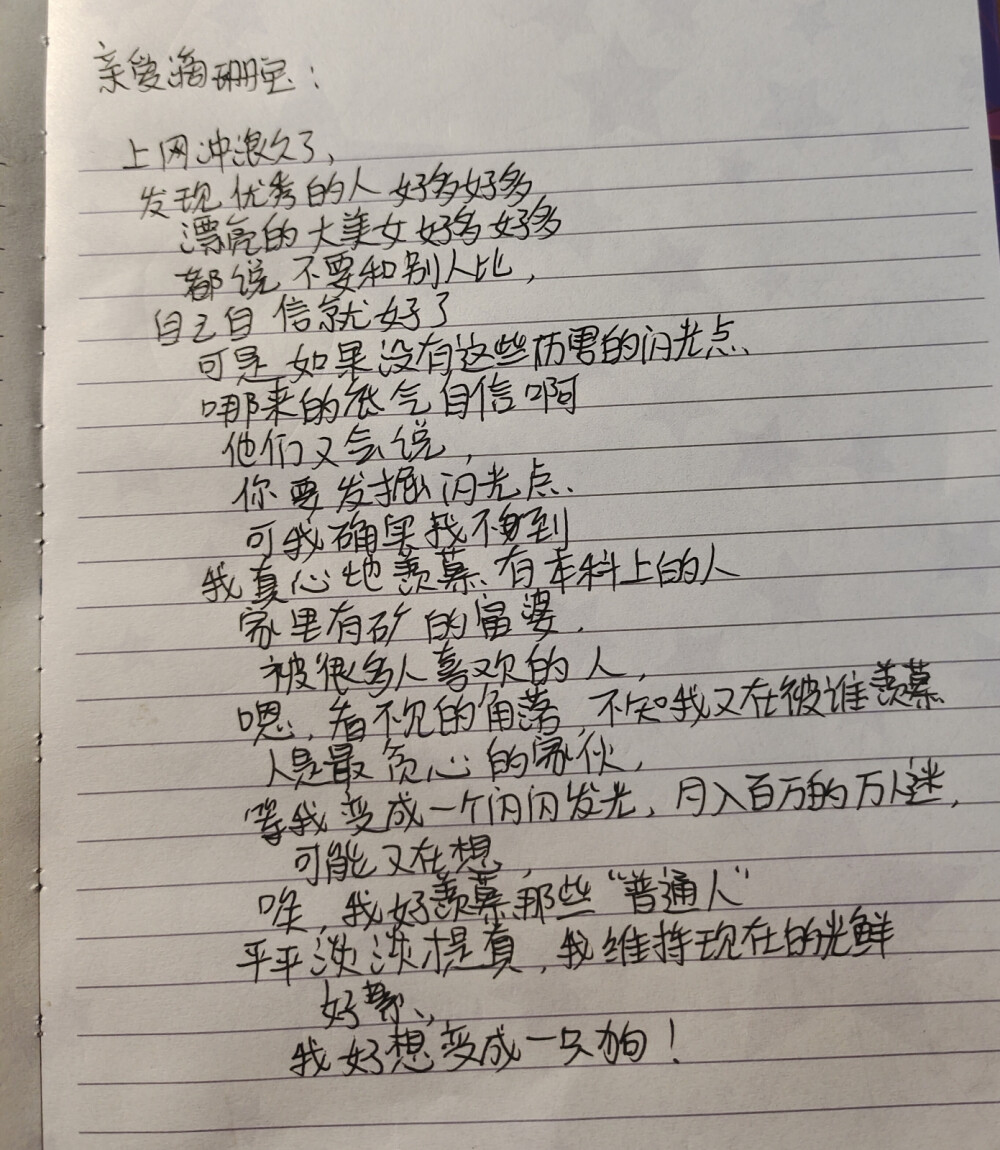 亲爱滴珊宝：
上网冲浪久了，
发现优秀的人好多好多
漂亮的大美女好多好多
都说不要和别人比，
自己自信就好了
可是如果没有这些厉害的闪光点、
哪来的底气自信啊
他们又会说，
你要发掘闪光点、
可我确实找不到
我真心地羡慕、有本科上的人
家里有矿的富婆，
被很多人喜欢的人，
嗯，看不见的角落，不知我又在被谁羡慕
人是最贪心的家伙，
等我变成一个闪闪发光、月入百万的万人迷，
可能又在想，
唉，我好羡慕那些“普通人”
平平淡淡才是真，我维持现在的光鲜
好累、，
我好想变成一只狗！